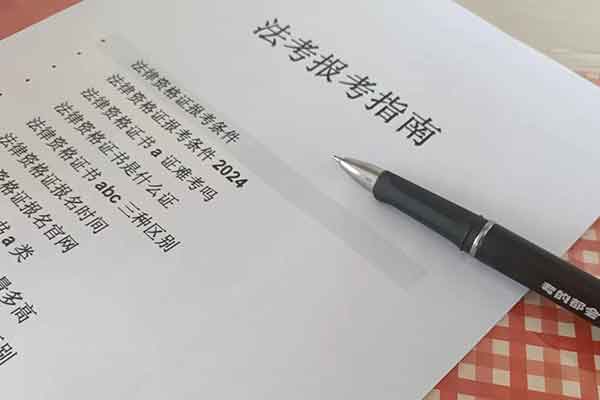 法考报考指南
法律资格证报考条件
法律资格证报考条件 2024
法律资格证书 a 证难考吗
法律资格证书是什么证
法律资格证书 abc 三种区别
法律资格证报名时间
资格证报名官网
书 a 类
最多高
区别